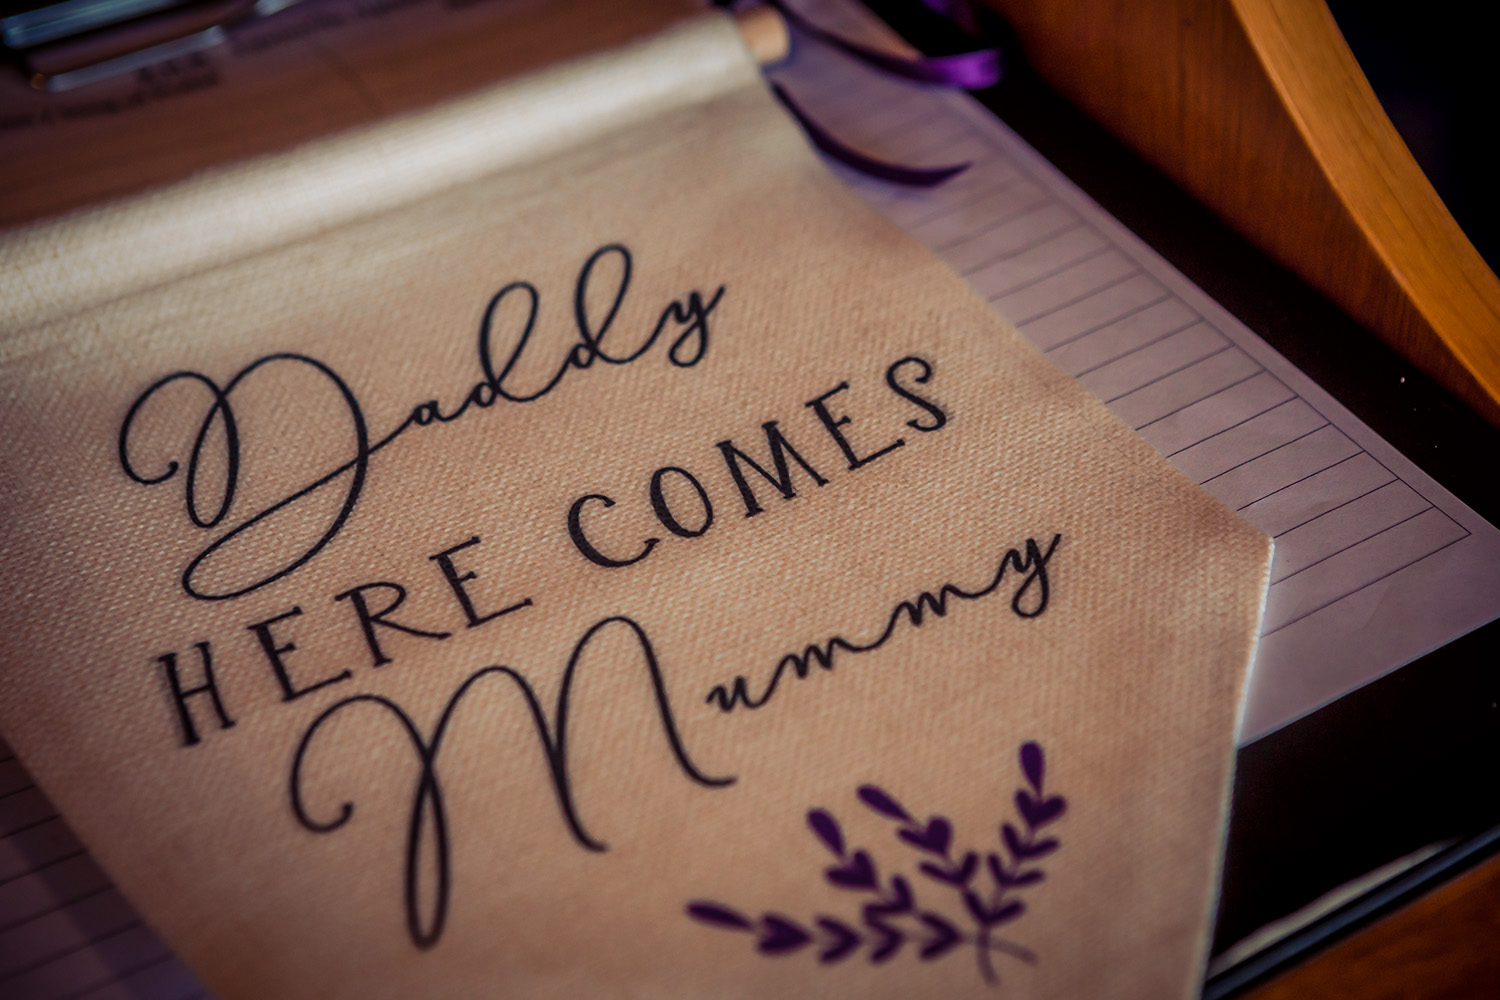 Daddy
HERE COMES
Mummy